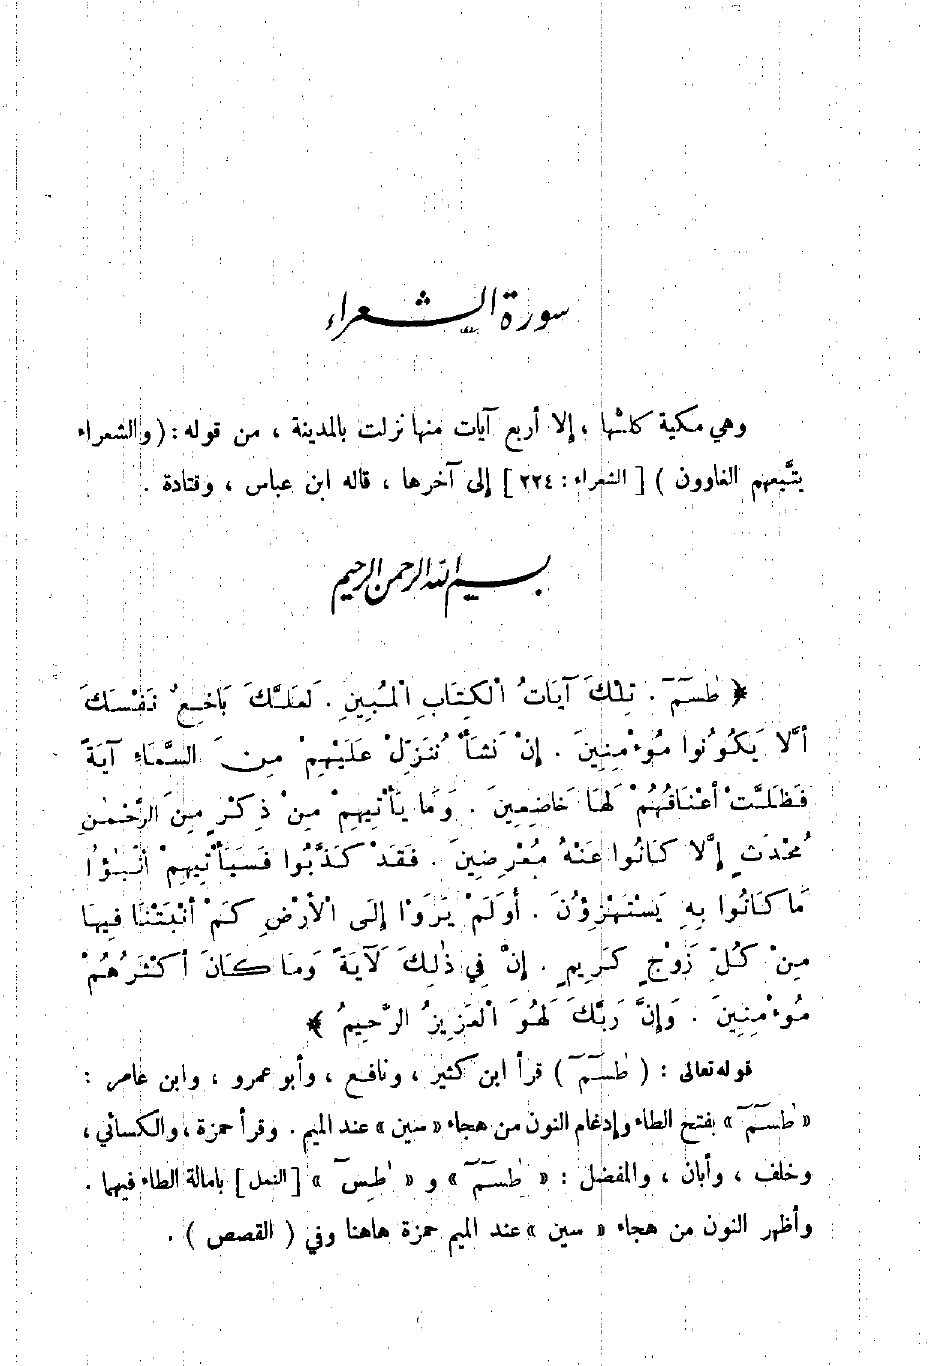 سورة الشعراء
وهي مكية كلُّها ، إلا أربع آيات منها نزلت بالمدينة ، من قوله : ( والشعراء
يتَّبعهم الغاوون ) [ الشعراء : ٢٢٤ ] إلى آخرها ، قاله ابن عباس ، وقتادة .
بسم الله الرحمن الرحيم
﴿ طٰسٓمٓ . تِلْكَ آيَاتُ الْكِتَابِ الْمُبِينِ . لَعَلَّكَ بَاخِعٌ نَفْسَكَ
أَلَّا يَكُونُوا مُؤْمِنِينَ . إِنْ نَشَأْ نُنَزِّلْ عَلَيْهِمْ مِنَ السَّمَاءِ آيَةً
فَظَلَّتْ أَعْنَاقُهُمْ لَهَا خَاضِعِينَ . وَمَا يَأْتِيهِمْ مِنْ ذِكْرٍ مِنَ الرَّحْمٰنِ
مُحْدَثٍ إِلَّا كَانُوا عَنْهُ مُعْرِضِينَ . فَقَدْ كَذَّبُوا فَسَيَأْتِيهِمْ أَنْبٰؤُا
مَا كَانُوا بِهِ يَسْتَهْزِؤُنَ . أَوَلَمْ يَرَوْا إِلَى الْأَرْضِ كَمْ أَنْبَتْنَا فِيهَا
مِنْ كُلِّ زَوْجٍ كَرِيمٍ . إِنَّ فِي ذٰلِكَ لَآيَةً وَمَا كَانَ أَكْثَرُهُمْ
مُؤْمِنِينَ . وَإِنَّ رَبَّكَ لَهُوَ الْعَزِيزُ الرَّحِيمُ ﴾
قوله تعالى : ( طٰسٓمٓ ) قرأ ابن كثير ، ونافع ، وأبو عمرو ، وابن عامر :
« طٰسٓمٓ » بفتح الطاء وإدغام النون من هجاء « سين » عند الميم . وقرأ حمزة ، والكسائي ،
وخلف ، وأبان ، والمفضل : « طِسٓمٓ » و « طِسٓ » [ النمل ] بامالة الطاء فيهما .
وأظهر النون من هجاء « سين » عند الميم حمزة هاهنا وفي ( القصص ) .